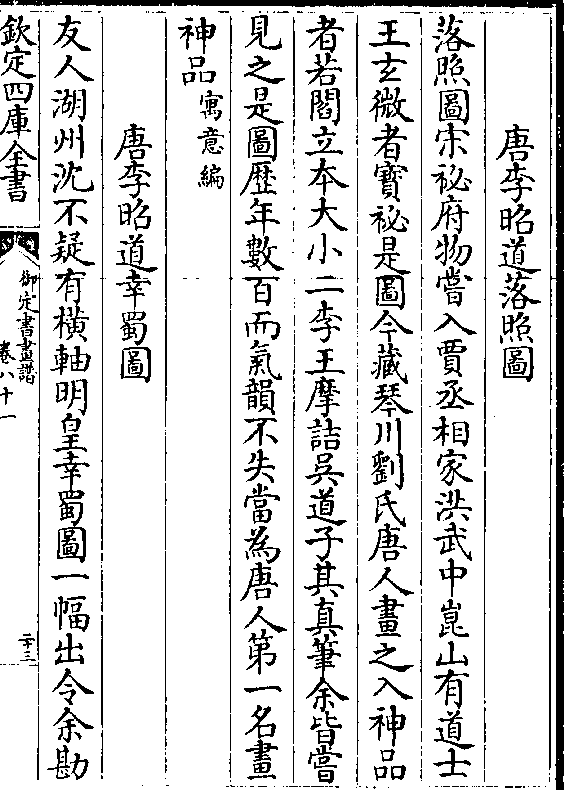 唐李昭道落照圖
落照圖宋祕府物嘗入賈丞相家洪武中崑山有道士
王玄微者寶祕是圖今藏琴川劉氏唐人畫之入神品
者若閻立本大小二李王摩詰吳道子其真筆余皆嘗
見之是圖歷年數百而氣韻不失當為唐人第一名畫
神品寓意編
唐李昭道幸蜀圖
友人湖州沈不疑有橫軸明皇幸蜀圖一幅出令余勘
欽定四庫全書
御定書畫譜
卷八十一
二十三